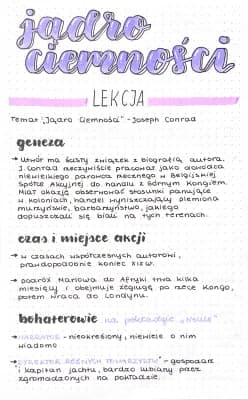 jądro
ciemności
LEKCJA
Temat: "Jądro Ciemności" - Joseph Conrad
geneza
→ Utwór ma ścisły związek z biografią autora.
J. Conrad rzeczywiście pracował jako dowódca
niewielkiego parowca rzecznego w Belgijskiej
Spółce Akcyjnej do handlu z Górnym Kongiem.
Miał okazję obserwować stosunki panujące
w koloniach, handel wyniszczający plemiona
murzyńskie, barbarzyństwo, jakiego
dopuszczali się biali na tych terenach.
czas i miejsce akcji
→ w czasach współczesnych autorowi,
prawdopodobnie koniec XIX w.
→ podróż Marlowa do Afryki trwa kilka
miesięcy i obejmuje żeglugę po rzece Kongo,
potem wraca do Londynu.
bohaterowie na pokładzie "Nellie"
→ NARRATOR - nieokreślony, niewiele o nim
wiadomo
→ "DYREKTOR RÓŻNYCH TOWARZYSTW" - gospodarz
i kapitan jachtu, bardzo lubiany przez
zgromadzonych na pokładzie.